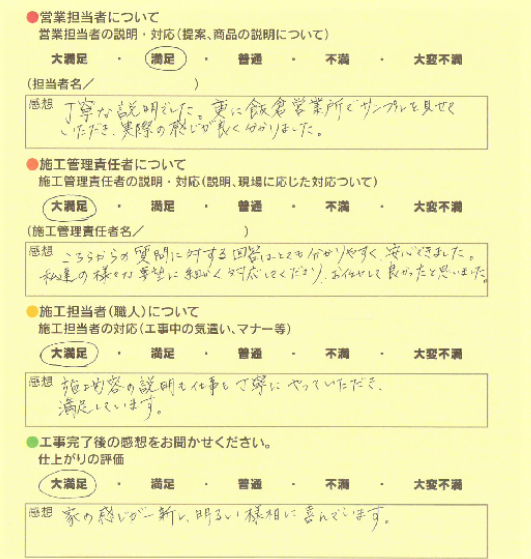 ●営業担当者について
営業担当者の説明・対応(提案、商品の説明について)
大満足 ・ 満足 ・ 普通 ・ 不満 ・ 大変不満
(担当者名／ )
感想 丁寧な説明でした。更に飯倉営業所でサンプルを見せて
いただき、実際の感じが良く分かりました。
●施工管理責任者について
施工管理責任者の説明・対応(説明、現場に応じた対応ついて)
大満足 ・ 満足 ・ 普通 ・ 不満 ・ 大変不満
(施工管理責任者名／ )
感想 こちらからの質問に対する回答はとても分かりやすく、安心できました。
私達の様々な要望に細かく対応してくださり、お任せして良かったと思いました。
●施工担当者(職人)について
施工担当者の対応(工事中の気遣い、マナー等)
大満足 ・ 満足 ・ 普通 ・ 不満 ・ 大変不満
感想 内容の説明も仕事も丁寧にやっていただき、
満足しています。
●工事完了後の感想をお聞かせください。
仕上がりの評価
大満足 ・ 満足 ・ 普通 ・ 不満 ・ 大変不満
感想 家の感じが一新し、明るい様相に喜んでいます。